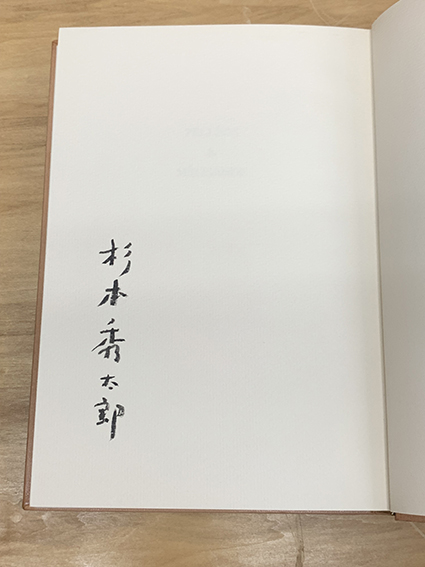 杉本秀太郎